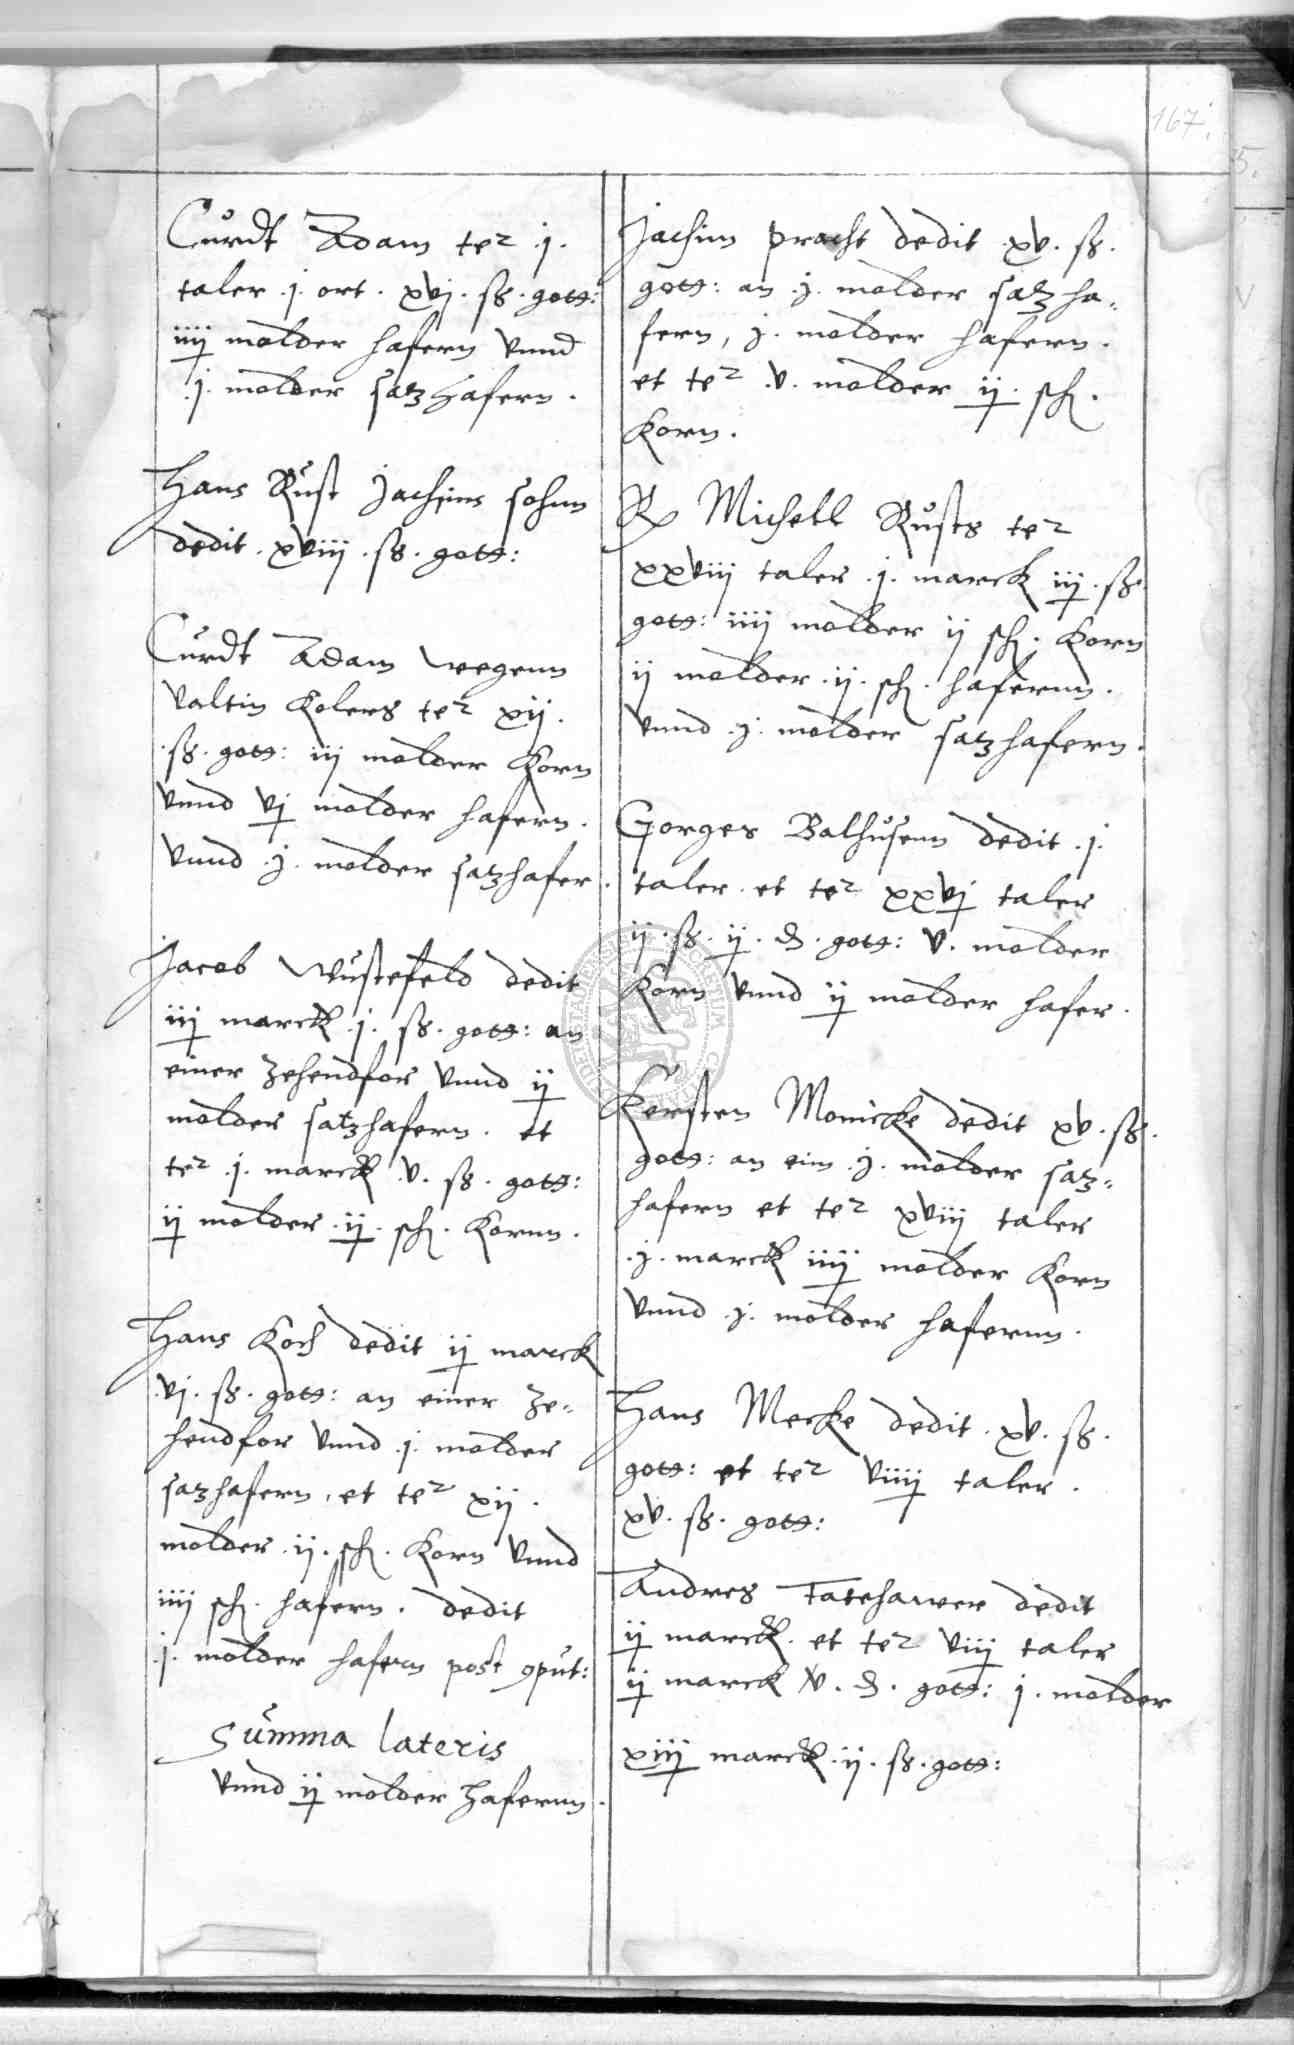 167.
Curdt Adam ter j.
taler j. ort. xvj. ß. gotts:
iiij molder hafern vnnd
.j. molder satzhafern.
Hans Rust Jachims sohnn
dedit. xviij. ß. gotts:
Curdt Adam wegenn
Valtin Kolers ter xij.
.ß. gotts: iij molder Korn
vnnd vj molder hafern.
vnnd .j. molder satzhafer.
Jacob Wustefeld dedit
iij marck .j. ß. gotts: an
einer zehendfor vnnd ij
molder satzhafern. et
ter .j. marck .v. ß. gotts:
ij molder .ij. sch. Kornn.
Hans Koch dedit ij marck
.vj. ß. gotts: an einer ze-
hendfor vnnd .j. molder
satzhafern, et ter xij.
molder .ij. sch. Korn vnnd
iiij sch. hafern. dedit
.j. molder hafern post 9put:
Summa lateris
vnnd ij molder hafernn.
Jachim Pracht dedit .xv. ß.
gotts: an .j. molder satz ha-
fern, j. molder hafern.
et ter .v. molder ij. sch.
Korn.
Michell Rusts ter
xxviij taler .j. marck iij. ß.
gotts: iiij molder ij sch. Korn
ij molder .ij. sch. hafernn.
vnnd .j. molder satzhafern.
Gorges Balhusenn dedit .j.
taler. et ter xxvj taler
ij. ß. ij. d. gotts: v. molder
Korn vnnd ij molder hafer.
Kersten Monicke dedit xv. ß.
gotts: an eim .j. molder satz-
hafern et ter xviij taler
.j. marck iiij molder Korn
vnnd .j. molder hafernn.
Hans Mecke dedit .xv. ß.
gotts: et ter viiij taler.
xv. ß. gotts:
Andres Fatehawer dedit
ij marck. et ter viij taler
ij marck v. d. gotts: j. molder
xiij marck .ij. ß. gotts: